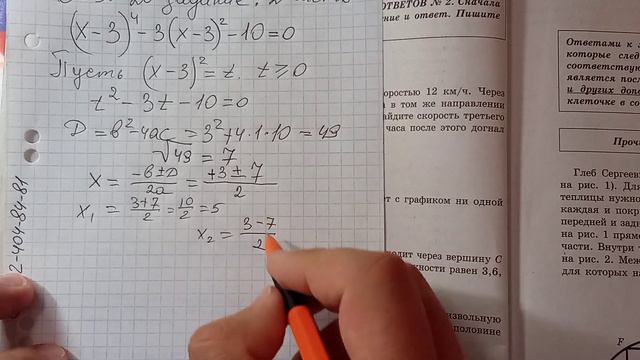 (x-3)⁴-3(x-3)²-10=0
Пусть (x-3)²=t. t≥0
t²-3t-10=0
D=b²-4ac=3²+4·1·10=49
√49=7
x=(-b±D)/2a=(+3±7)/2
x₁=(3+7)/2=10/2=5
x₂=(3-7)/2
2-404-84-81
ОТВЕТОВ № 2. Сначала
ние и ответ. Пишите
оростью 12 км/ч. Через
в том же направлении
айдите скорость третьего
часа после этого догнал
ет с графиком ни одной
одит через вершину C
жности равен 3,6,
оизвольную
половине
Ответами к
которые след
соответствую
является посл
и других допо
клеточке в со
Проч
Глеб Сергеев
на рис. 1). Для
теплицы нужно
каждая и покр
передней и задн
на рис. 1 прямо
части. Внутри
на рис. 2. Меж
для которых на
F